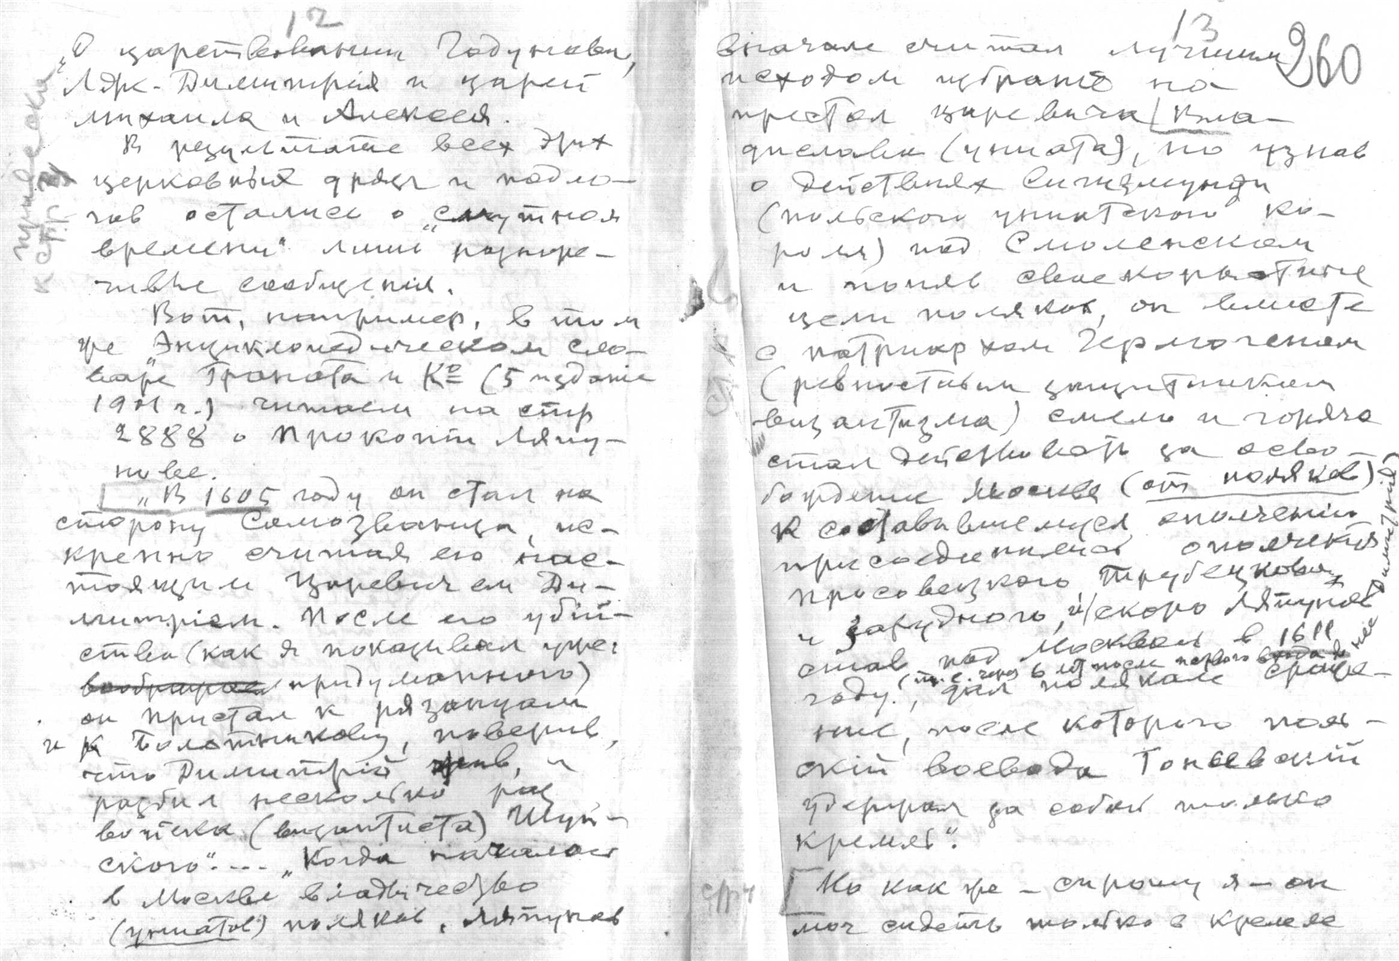 12
„О царствовании Годунова,
Лж.-Димитрія и царей
Михаила и Алексея.
В результате всех этих
церковных драк и подло-
гов остались о „смутном
времени“ лишь разноре-
чивые сообщения.
Вот, например, в том
же „Энциклопедическом сло-
варе Граната и Кº (5 издание
1901 г.) читаем на стр
2888 о Прокопии Ляпу-
нове.
„В 1605 году он стал на
сторону Самозванца, ис-
кренно считая его нас-
тоящим Царевичем Ди-
митрием. После его убій-
ства (как я показывал уже:
придуманного)
он пристал к рязанцам
и к Болотникову, поверив,
что Димитрій жив, и
разбил несколько раз
войска (византиста) Шуй-
ского“.... „Когда началось
в Москве владычество
(униатов) поляков, Ляпунов
к стр
13
260
вначале считал лучшим
исходом избрание на
престол царевича Вла-
дислава (униата), но узнав
о действиях Сигизмунда
(польского униатского ко-
роля) под Смоленском
и поняв своекорыстные
цели поляков, он вместе
с патриархом Гермогеном
(ревностным защитником
византизма) смело и горячо
стал действовать за осво-
бождение Москвы (от поляков)
К составившемуся ополчению
присоединились ополчения
Просовецкого Трубецкова
и Заруцкого, и скоро Ляпунов
став под Москвой в 1611
(т.е. через 6 лет после первого
году, дал полякам сраже-
ние, после которого поль-
скій воевода Гонсевский
удержал за собой только
кремль“.
Но как же – спрошу я – он
мог сидеть только в кремле